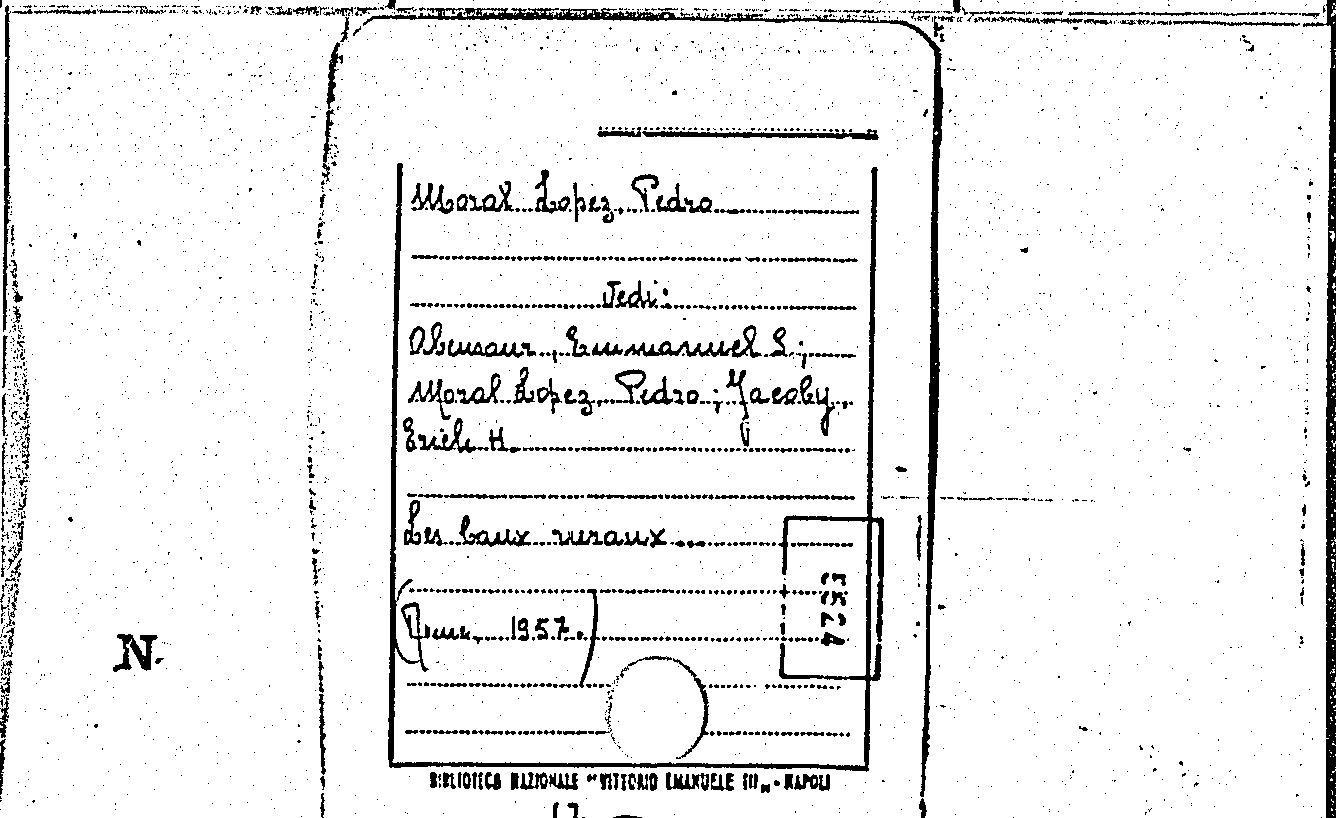 Moral Lopez, Pedro
Vedi:
Abensour, Emmanuel S.;
Moral Lopez, Pedro; Jacoby,
Erich H.
Les baux ruraux...
(Rome, 1957.)
5524
N.
BIBLIOTECA NAZIONALE "VITTORIO EMANUELE III" - NAPOLI